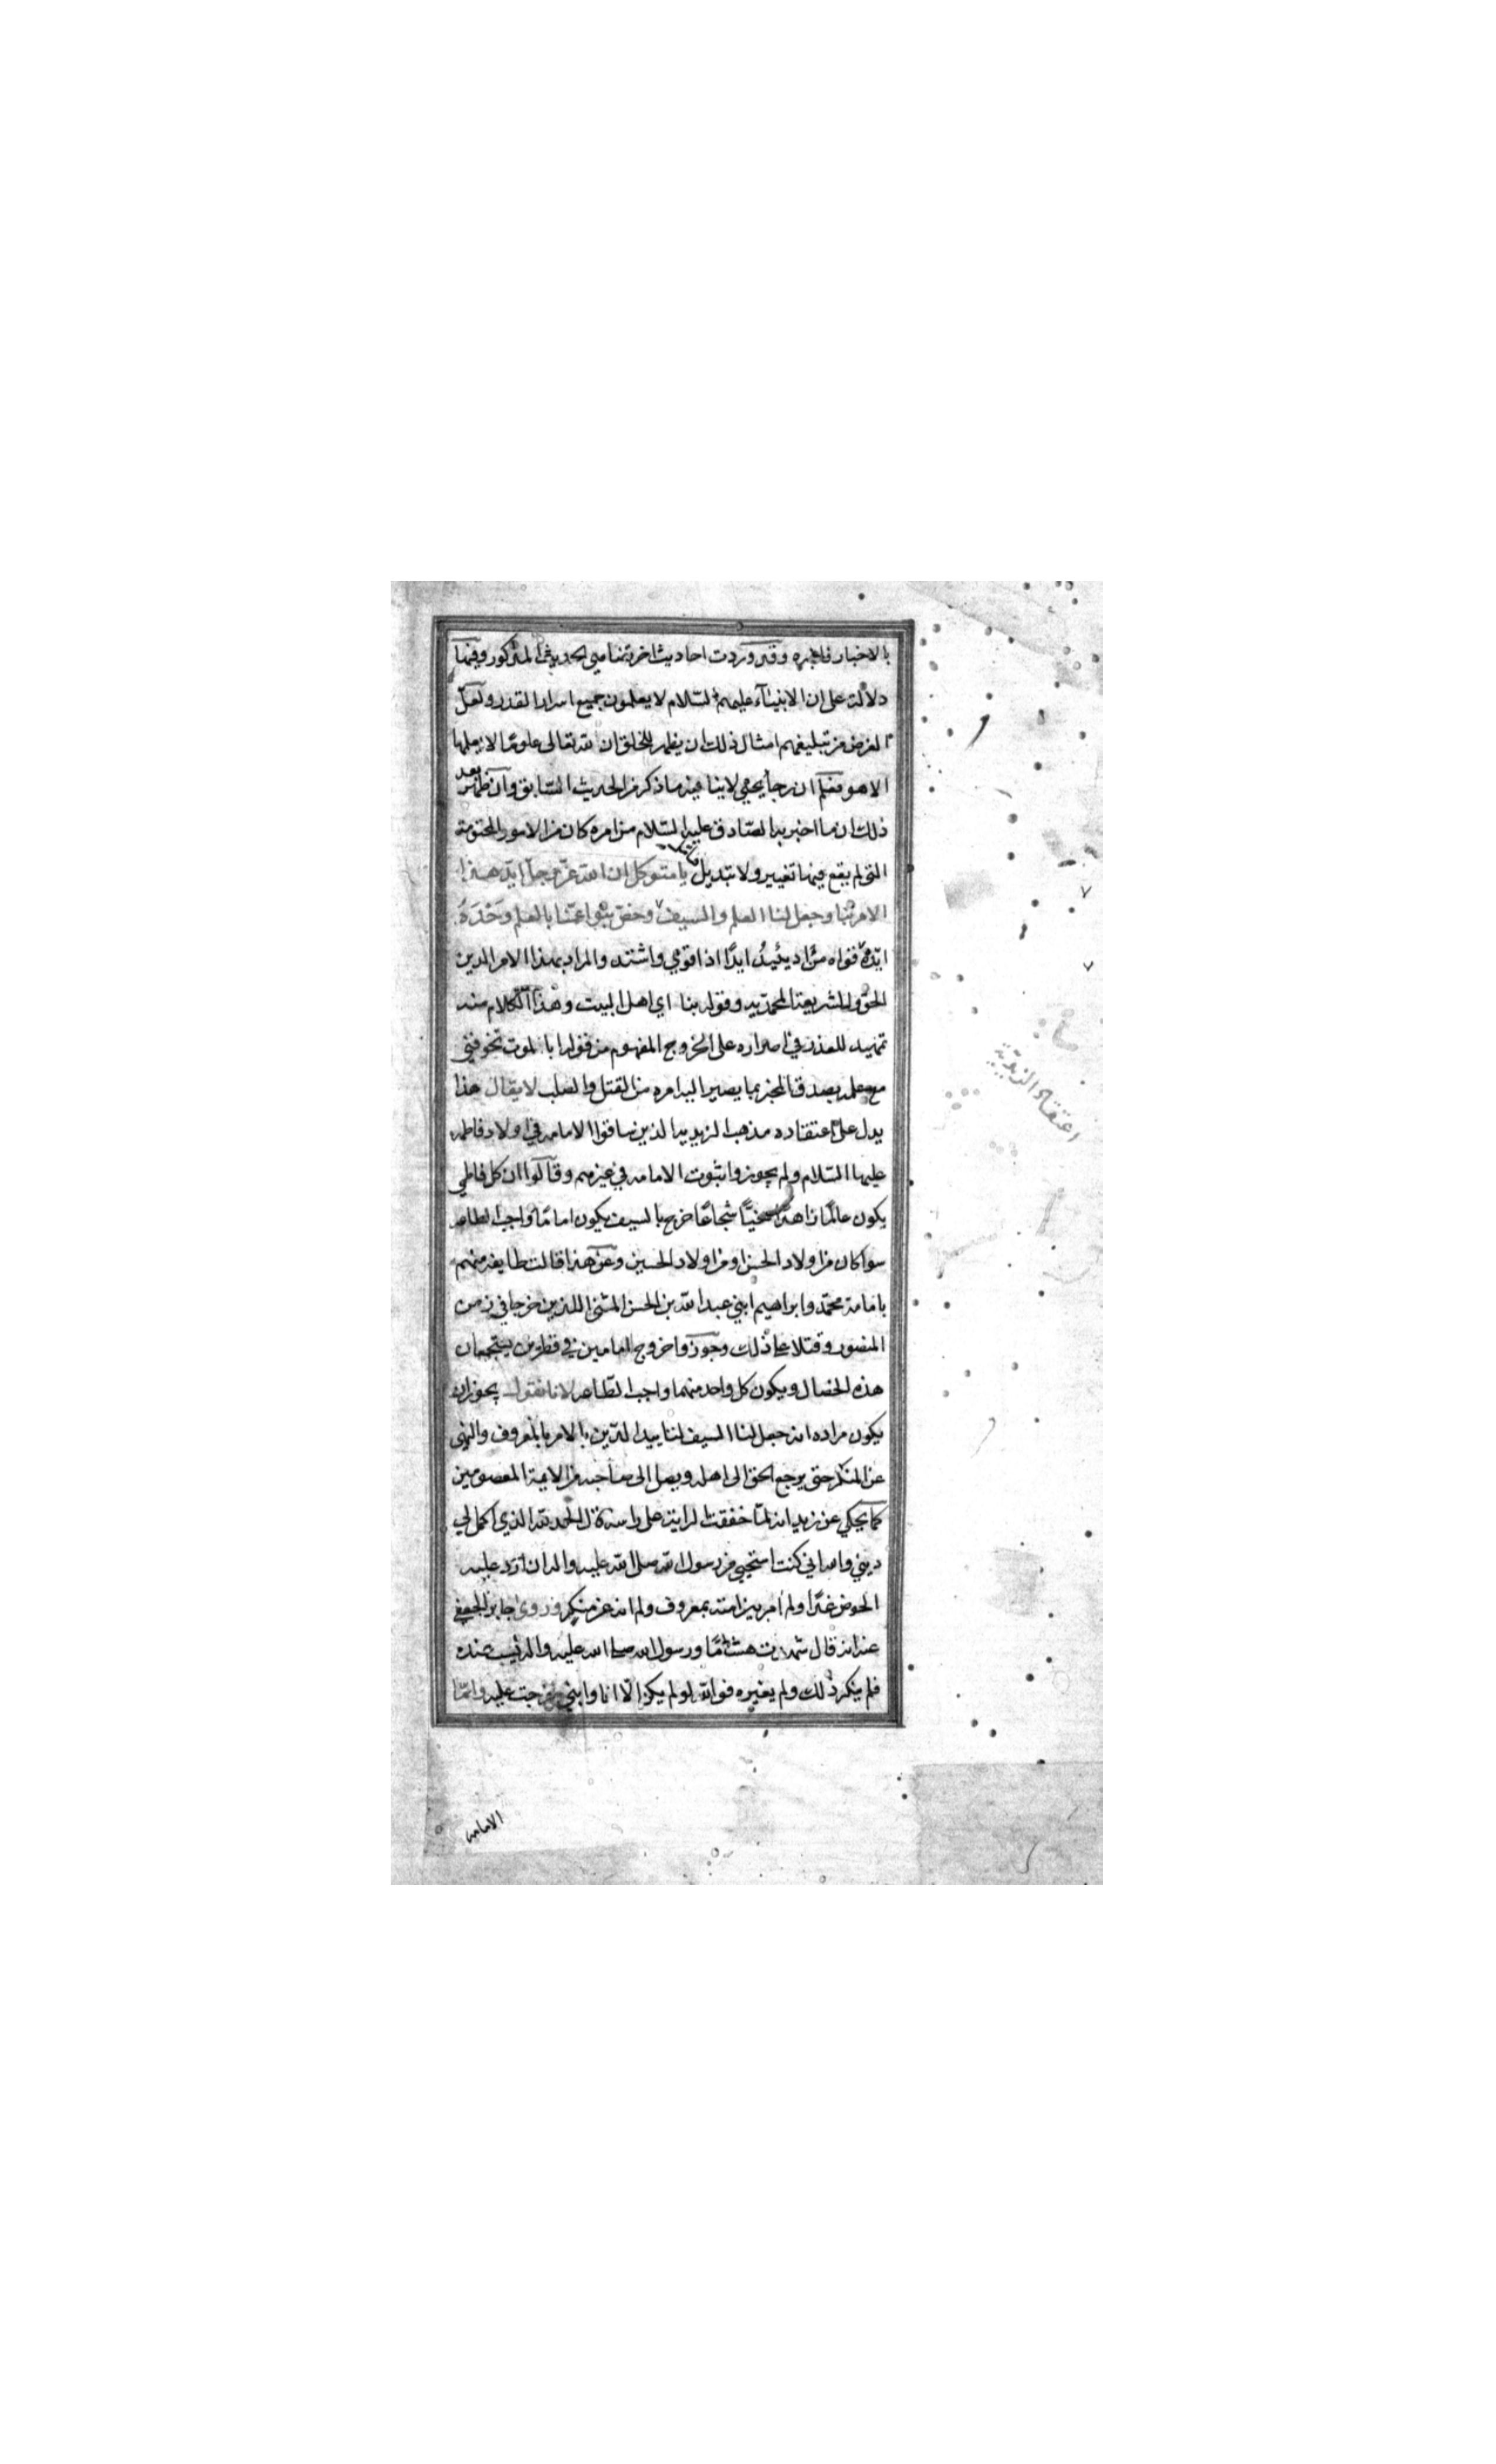 بالاخبار فاخبره وقد وردت احاديث اخر تضاهي الحديث المذكور وفيها
دلالة على ان الانبيآء عليهم السلام لا يعلمون جميع اسرار القدر ولعل
الغرض من تبليغهم امثال ذلك ان يظهر للخلق ان لله تعالى علوما لا يعلمها
الا هو فعلم ان رجا يحيى لا ينافيه ما ذكر من الحديث السابق وان ظهر بعد
ذلك ان ما اخبر به الصادق عليه السلام من امره كان من الامور المحتومة
التي لم يقع فيها تغيير ولا تبديل يا متوكل ان الله عز وجل ايد هذا
الامر بنا وجعل لنا العلم والسيف وخص بنو اعمنا بالعلم وحده
ايده قواه من اد يئيد ايدا اذا قوي واشتد والمراد بهذا الامر الدين
الحق والشريعة المحمدية وقوله بنا اي اهل البيت وهذا الكلام منه
تمهيد للعذر في اصراره على الخروج المفهوم من قوله ابا لموت تخوفني
مع علمه بصدق المخبر بما يصير اليه امره من القتل والصلب لا يقال هذا
يدل على اعتقاده مذهب الزيدية الذين ساقوا الامامه في اولاد فاطمه
عليها السلام ولم يجوزوا ثبوت الامامه في غيرهم وقالوا ان كل فاطمي
يكون عالما زاهدا سخيا شجاعا خرج بالسيف يكون اماما واجب الطاعه
سوا كان من اولاد الحسن او من اولاد الحسين وعن هذا قالت طايفه منهم
بامامة محمد وابراهيم ابني عبد الله بن الحسن المثنى اللذين خرجا في زمن
المنصور وقتلا على ذلك وجوزوا خروج امامين في قطرين يستجمعان
هذه الخصال ويكون كل واحد منهما واجب الطاعه لانا نقول يجوز ان
يكون مراده انه جعل لنا السيف لتاييد الدين بالامر بالمعروف والنهى
عن المنكر حتى يرجع الحق الى اهله ويصل الى صاحبه من الايمة المعصومين
كما يحكى عن زيد انه لما خفقت الراية على راسه قال الحمد لله الذي اكمل لي
ديني واسه اني كنت استحيي من رسول الله صلى الله عليه واله ان ارد عليه
الحوض غدا ولم آمر بين امته بمعروف ولم انه عن منكر وروى جابر الجعفي
عنه انه قال شهدت هشاما ورسول الله صلى الله عليه واله يسب عنده
فلم ينكر ذلك ولم يغيره فوالله لو لم يكن الا انا وابني لخرجت عليه وانما
الامامه
اعتقاد الزيدية